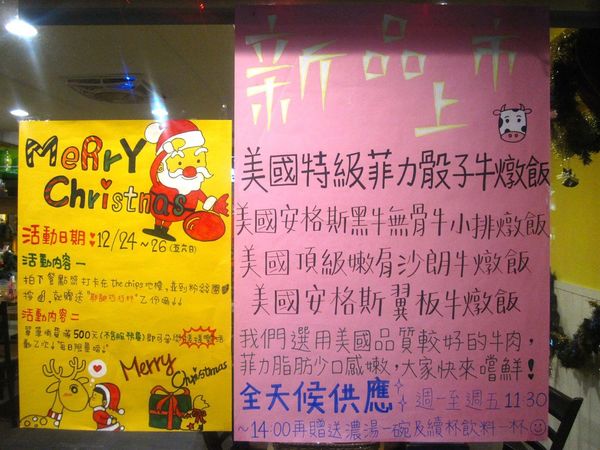 Merry
Christmas
活動日期：12/24～26(五六日)
活動內容一
拍下餐點照打卡在the chips地標，並到粉絲團
活動內容二
單筆消費滿500元
Merry
Christmas
新品上市
美國特級菲力骰子牛燉飯
美國安格斯黑牛無骨牛小排燉飯
美國頂級嫩肩沙朗牛燉飯
美國安格斯翼板牛燉飯
我們選用美國品質較好的牛肉，
菲力脂肪少口感嫩，大家快來嚐鮮！
全天候供應 週一至週五11:30
～14:00再贈送濃湯一碗及續杯飲料一杯